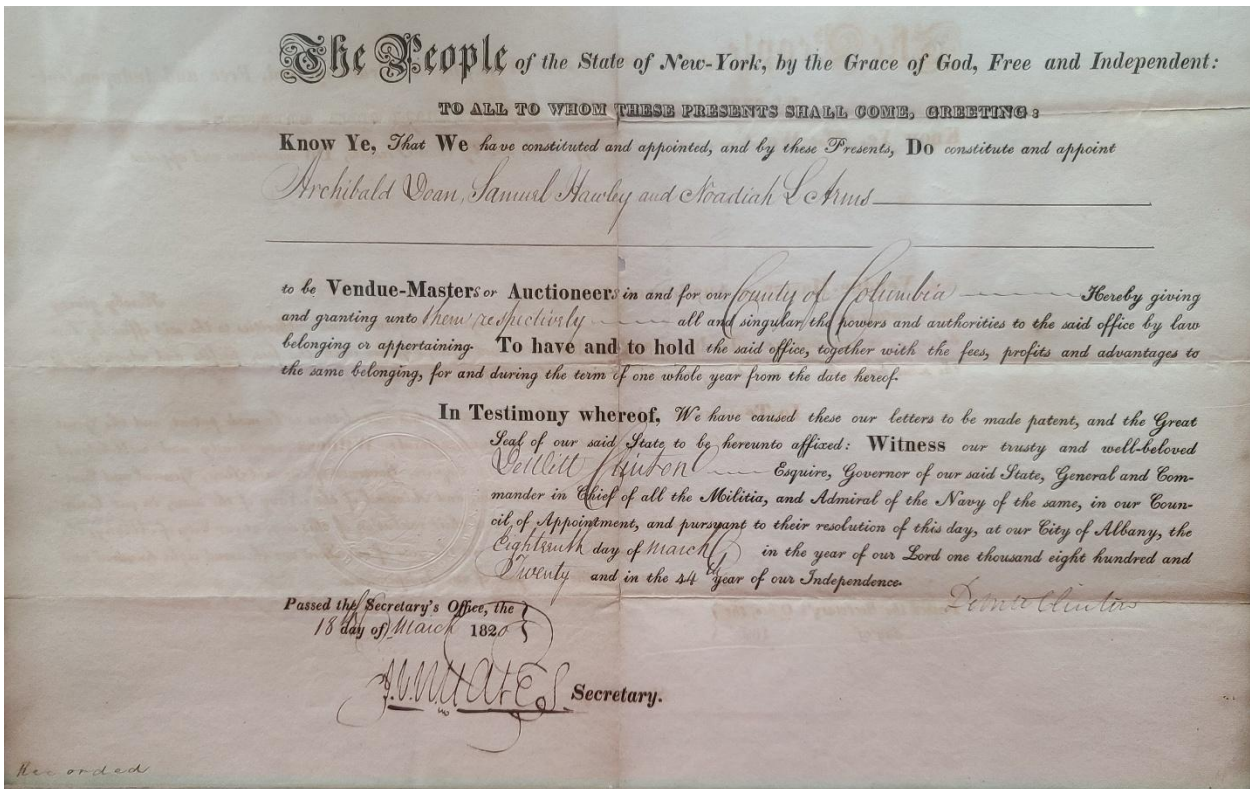 The People of the State of New-York, by the Grace of God, Free and Independent:
TO ALL TO WHOM THESE PRESENTS SHALL COME, GREETING:
Know Ye, That We have constituted and appointed, and by these Presents, Do constitute and appoint
Archibald Doan, Samuel Hawley and Noadiah L Arms
to be Vendue-Masters or Auctioneers in and for our County of Columbia Hereby giving
and granting unto them respectively all and singular the powers and authorities to the said office by law
belonging or appertaining. To have and to hold the said office, together with the fees, profits and advantages to
the same belonging, for and during the term of one whole year from the date hereof.
In Testimony whereof, We have caused these our letters to be made patent, and the Great
Seal of our said State to be hereunto affixed: Witness our trusty and well-beloved
DeWitt Clinton Esquire, Governor of our said State, General and Com-
mander in Chief of all the Militia, and Admiral of the Navy of the same, in our Coun-
cil of Appointment, and pursuant to their resolution of this day, at our City of Albany, the
Eighteenth day of March in the year of our Lord one thousand eight hundred and
Twenty and in the 44th year of our Independence.
DeWitt Clinton
Passed the Secretary's Office, the
18th day of March 1820
Secretary.
Recorded